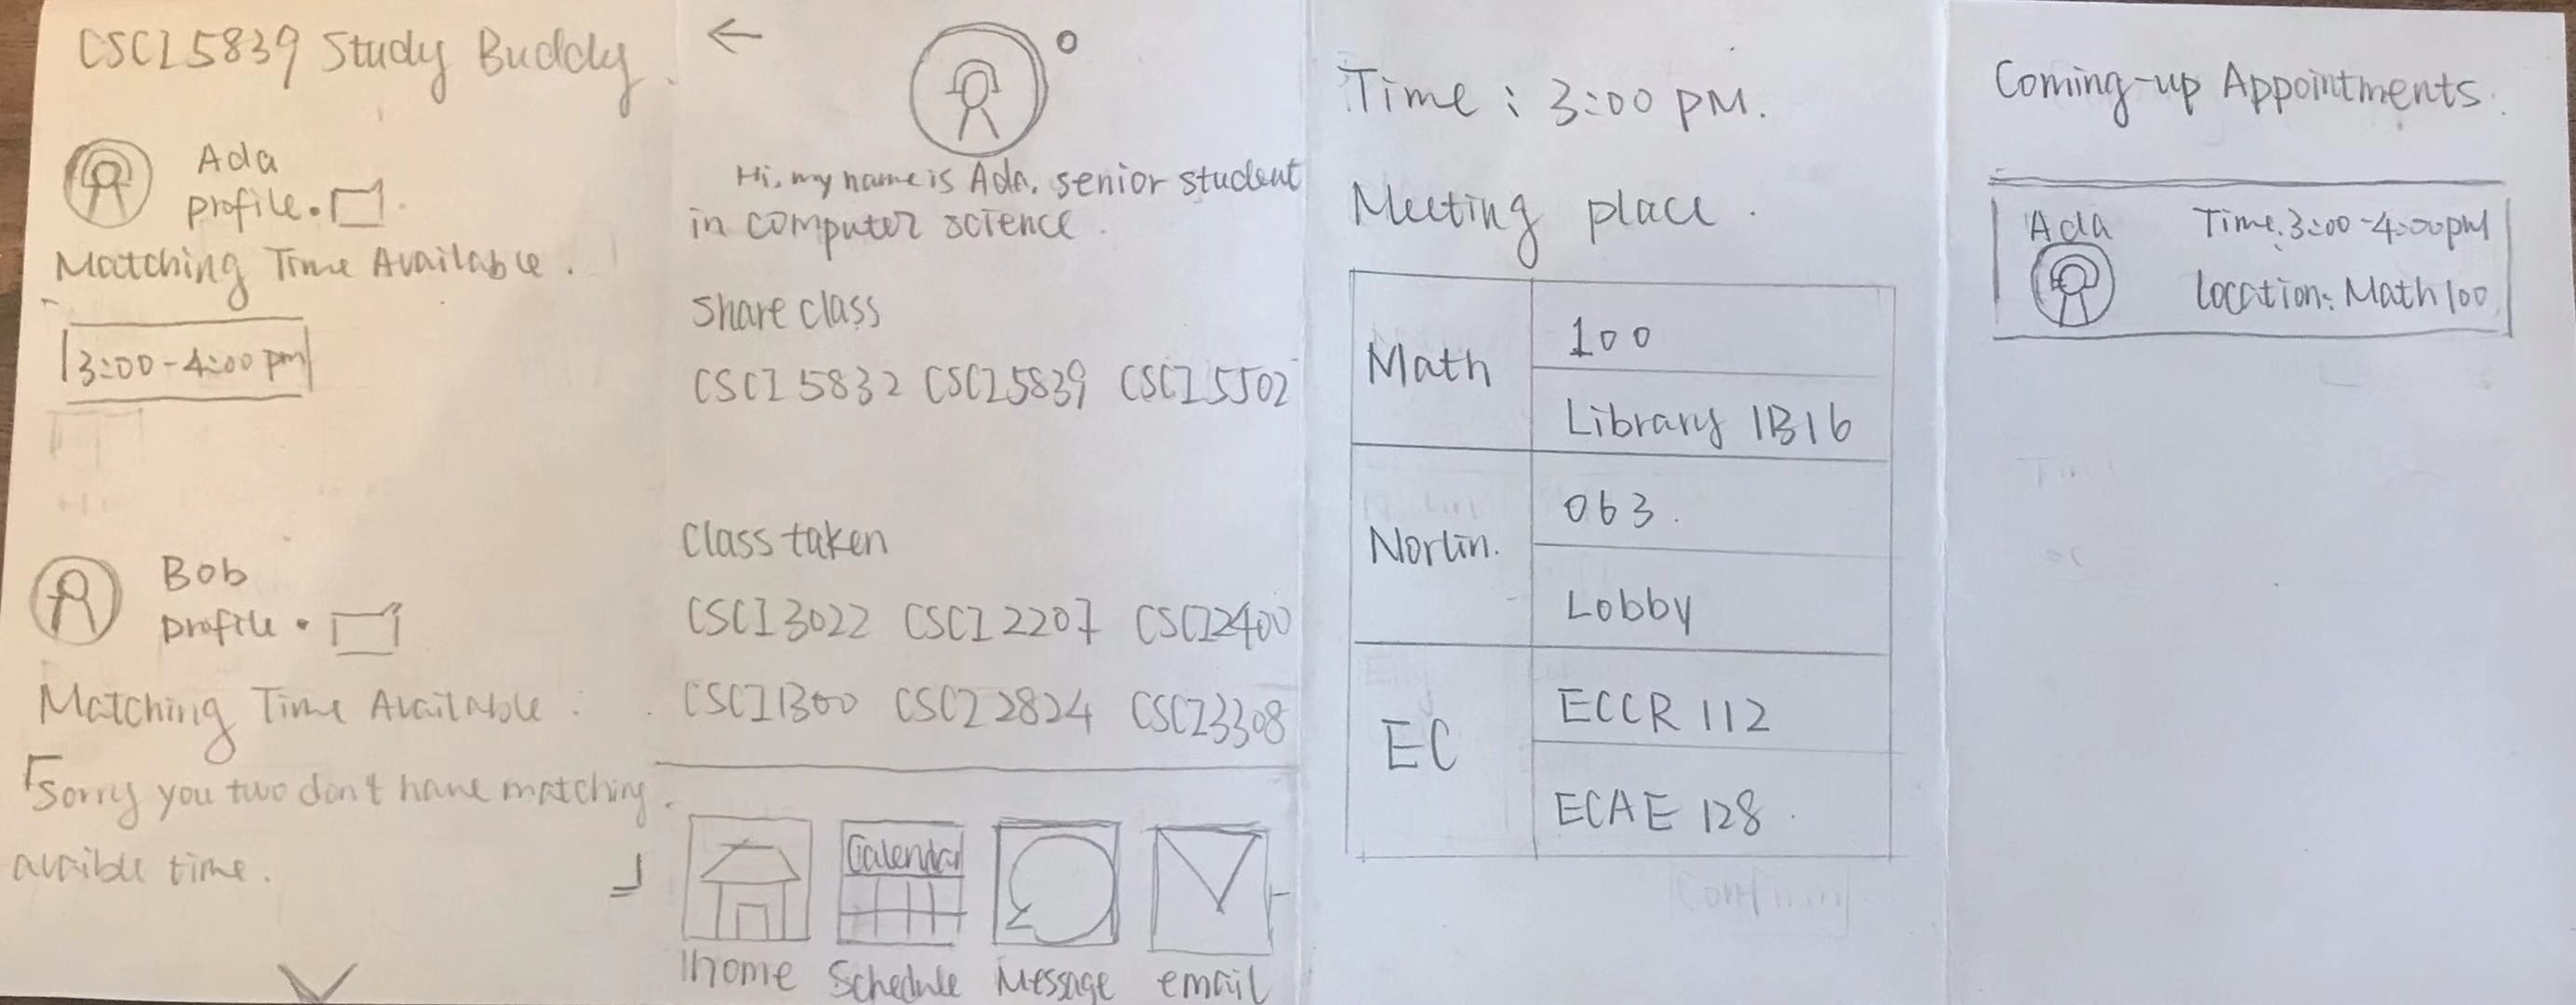 CSCI 5839 Study Buddy.
Ada
profile.
Matching Time Available.
3:00-4:00 pm
Bob
profile.
Matching Time Available:
「Sorry you two don't have matching.
avaible time.
」
←
Hi, my name is Ada, senior student
in computer science.
Share class
CSCI 5832 CSCI 5839 CSCI 5502
Class taken
CSCI 3022 CSCI 2207 CSCI 2400
CSCI 1300 CSCI 2824 CSCI 3308
Calendar
home Schedule Message email
Time: 3:00 PM.
Meeting place.
Math
100
Library 1B16
Norlin.
063.
Lobby
EC
ECCR 112
ECAE 128.
Confirm
Coming-up Appointments.
Ada Time: 3:00-4:00pm
location: Math 100